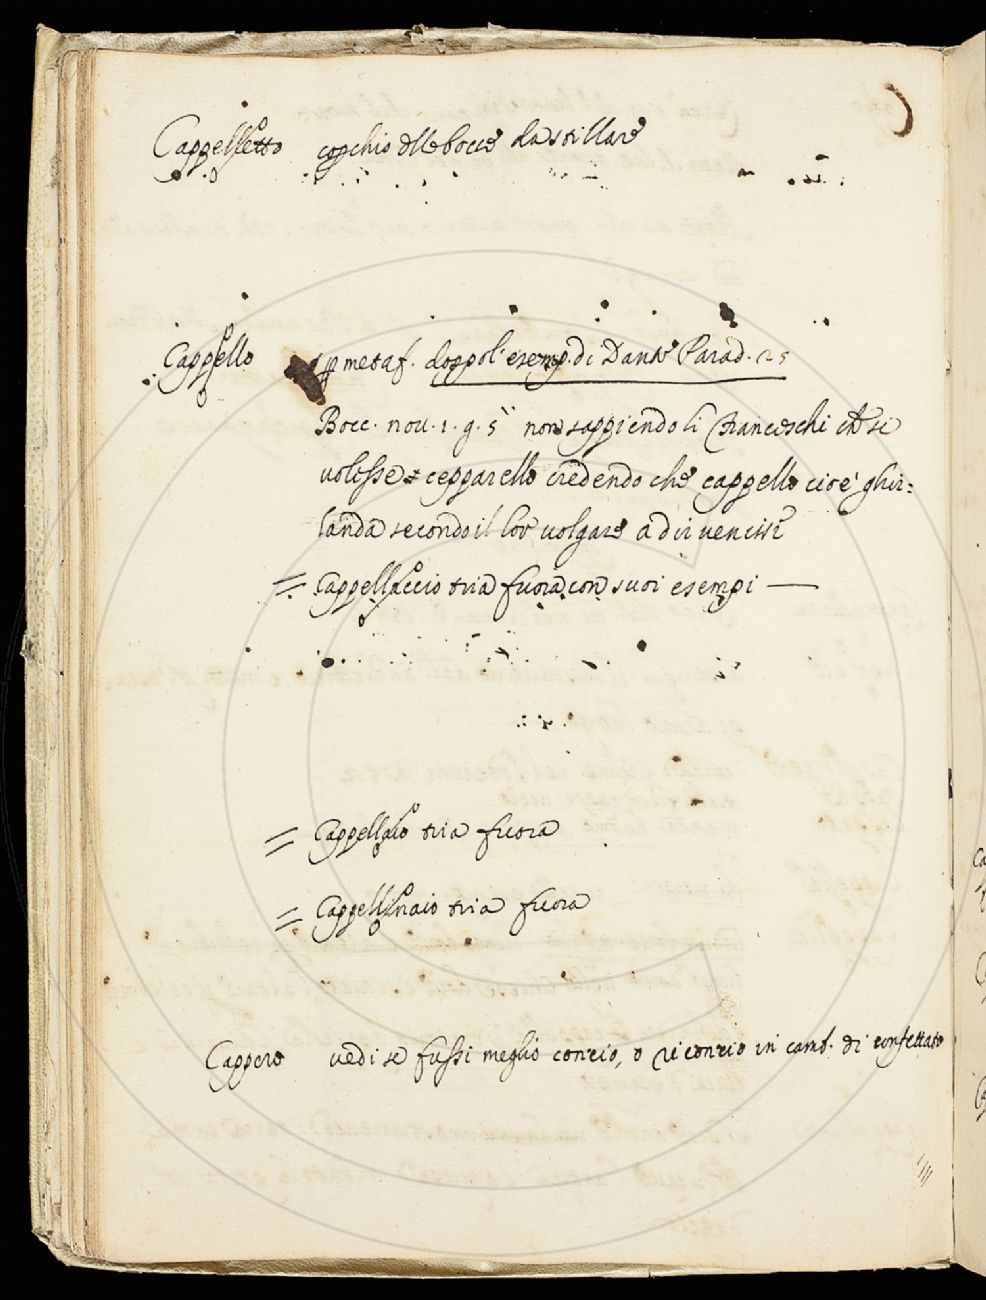 Cappelletto copchio dlle bocce da stillare
Cappello p metaf. doppo l'esemp. di Dante Parad. 25
Bocc. nou. 1. g. 5 non sappiendo li Franceschi ch si
volesse cepparello credendo che cappello cioè ghir=
landa secondo il lor volgare a dir venisse
= Cappellaccio tria fuora con suoi esempi —
= Cappellaio tria fuora
= Cappellinaio tria fuora
Cappero vedi se fussi meglio concio, o riconcio in camb. di confettato